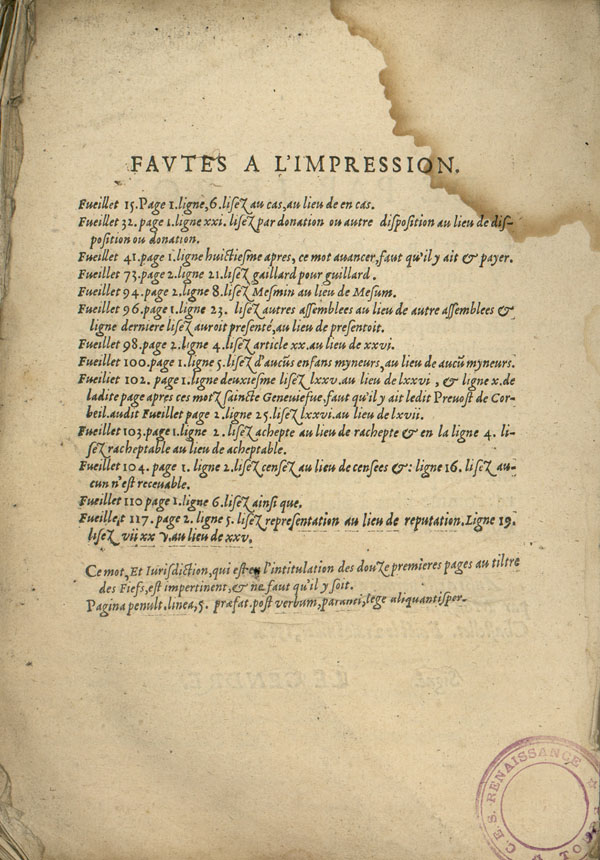 FAVTES A L'IMPRESSION.
Fueillet 15. Page 1. ligne, 6. lisez au cas, au lieu de en cas.
Fueillet 32. page 1. ligne xxi. lisez par donation ou autre disposition au lieu de dis-
position ou donation.
Fueillet 41. page 1. ligne huictiesme apres, ce mot auancer, faut qu'il y ait & payer.
Fueillet 73. page 2. ligne 21. lisez gaillard pour guillard.
Fueillet 94. page 2. ligne 8. lisez Mesmin au lieu de Mesum.
Fueillet 96. page 1. ligne 23. lisez autres assemblees au lieu de autre assemblees &
ligne derniere lisez auroit presenté, au lieu de presentoit.
Fueillet 98. page 2. ligne 4. lisez article xx. au lieu de xxvi.
Fueillet 100. page 1. ligne 5. lisez d'aucũs enfans myneurs, au lieu de aucũ myneurs.
Fueillet 102. page 1. ligne deuxiesme lisez lxxv. au lieu de lxxvi, & ligne x. de
ladite page apres ces motz saincte Geneuiefue, faut qu'il y ait ledit Preuost de Cor-
beil. audit Fueillet page 2. ligne 25. lisez lxxvi. au lieu de lxvii.
Fueillet 103. page 1. ligne 2. lisez achepte au lieu de rachepte & en la ligne 4. li-
sez racheptable au lieu de acheptable.
Fueillet 104. page 1. ligne 2. lisez censez au lieu de censees &: ligne 16. lisez au-
cun n'est receuable.
Fueillet 110 page 1. ligne 6. lisez ainsi que.
Fueillet 117. page 2. ligne 5. lisez representation au lieu de reputation. Ligne 19.
lisez vii xx v. au lieu de xxv.
Ce mot, Et Iurisdiction, qui est en l'intitulation des douze premieres pages au tiltre
des Fiefs, est impertinent, & ne faut qu'il y soit.
Pagina penult. linea, 5. præfat. post verbum, parauci, lege aliquantisper.
C.E.S. RENAISSANCE